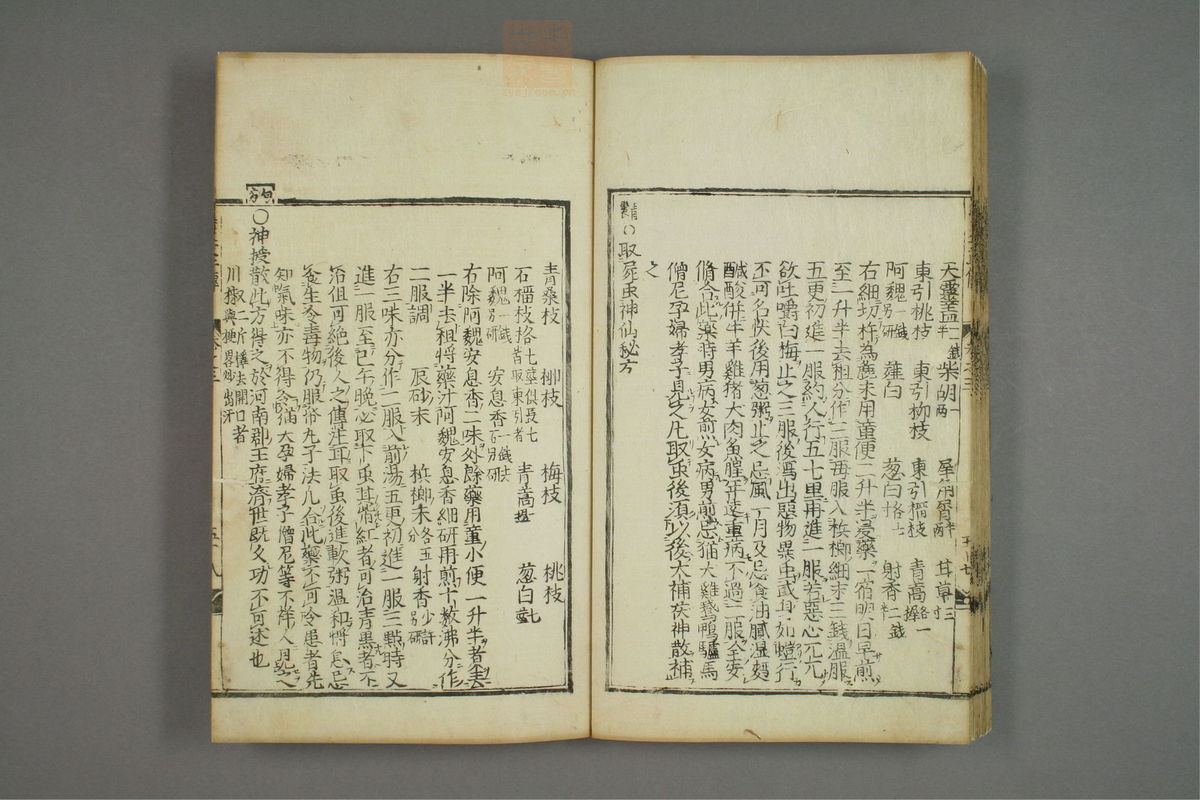 天靈蓋 柴胡一兩 甘草三寸
東引桃枝 東引柳枝 東引榴枝 青蒿一握
阿魏一錢別研 薤白 葱白七 射香一錢
右細切杵為麁末用童便二升半浸藥一宿明日早煎
至一升半去柤分作二服再服入檳榔細末三錢溫服
五更初進一服約人行五七里再進一服若惡心
欲吐嚼白梅止之三服後瀉出惡物異虫或身如蟻行
不可名快後用葱粥止之忌風一月及忌食油膩濕麪
醎酸併牛羊雞猪犬肉魚腥等遠重病不過二服全安
脩合此藥時男病女煎女病男煎忌猫犬雞鵞鴨驢馬
僧尼孕婦孝子見之凡取虫後須以後大補茯神散補
之
○取屍虫神仙秘方
青桑枝 柳枝 梅枝 桃枝
石榴枝 七莖俱長七寸取東引者 青蒿 葱白
阿魏一錢別研 安息香一錢別研
右除阿魏安息香二味外餘藥用童小便一升半煮去
一半去柤將藥汁阿魏安息香細研再煎十數沸分作
二服調 辰砂末 檳榔末 射香少許別研
右三味亦分作二服入前湯五更初進一服三點時又
進一服至巳午晚必取下虫其
治但可絕後人之傳注耳取虫後進軟粥溫和將息忌
食生冷毒物仍服 丸子法凡合此藥不可令患者先
知氣味亦不得令猫犬孕婦孝子僧尼等不祥人見之
○神授散此方得之於河南郡王府濟世既久功不可述也
川椒二斤擇去開口者